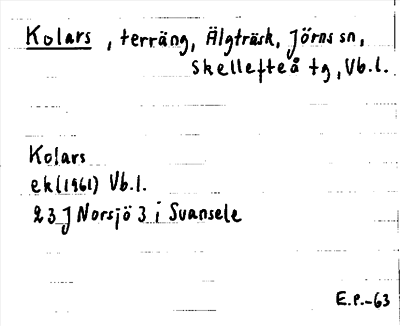 Kolars, terräng, Älgträsk, Jörns sn,
Skellefteå tg, Vb.l.
Kolars
ek(1961) Vb.l.
23J Norsjö 3 i Svansele
E.P.-63